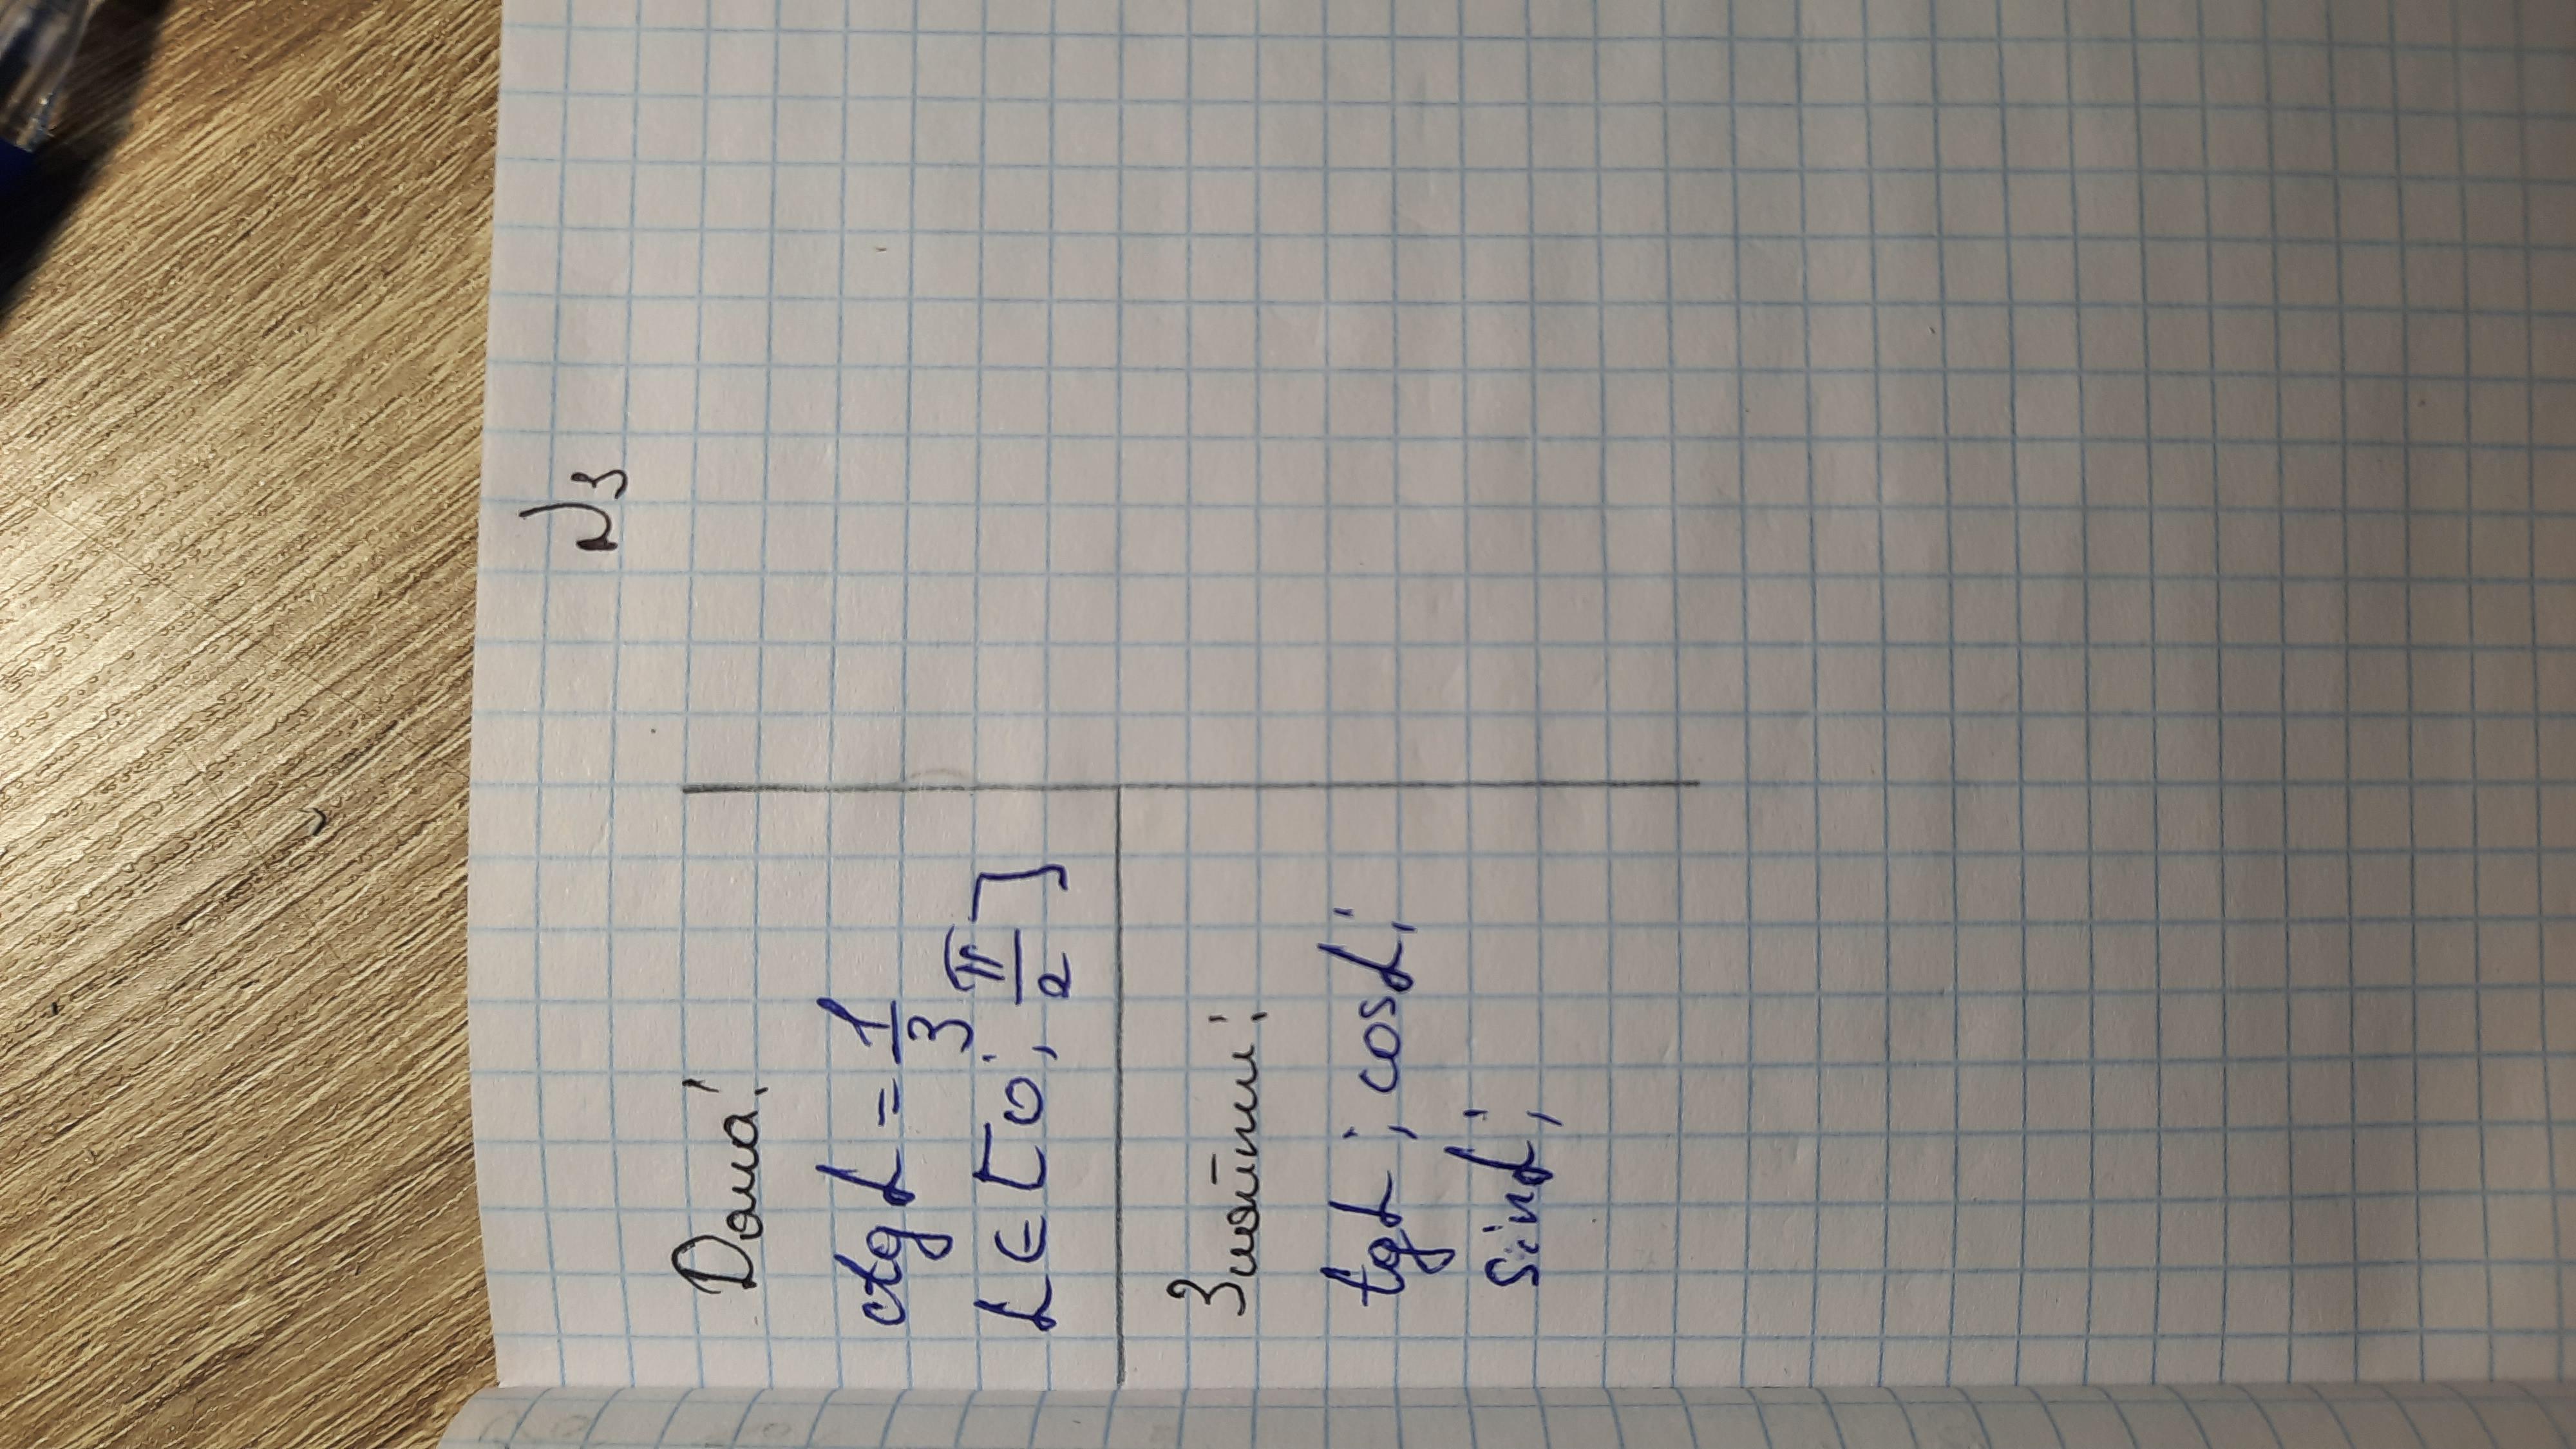 N3
Дано:
ctg α = 1/3
α ∈ [0; π/2]
Знайти:
tg α; cos α;
sin α;